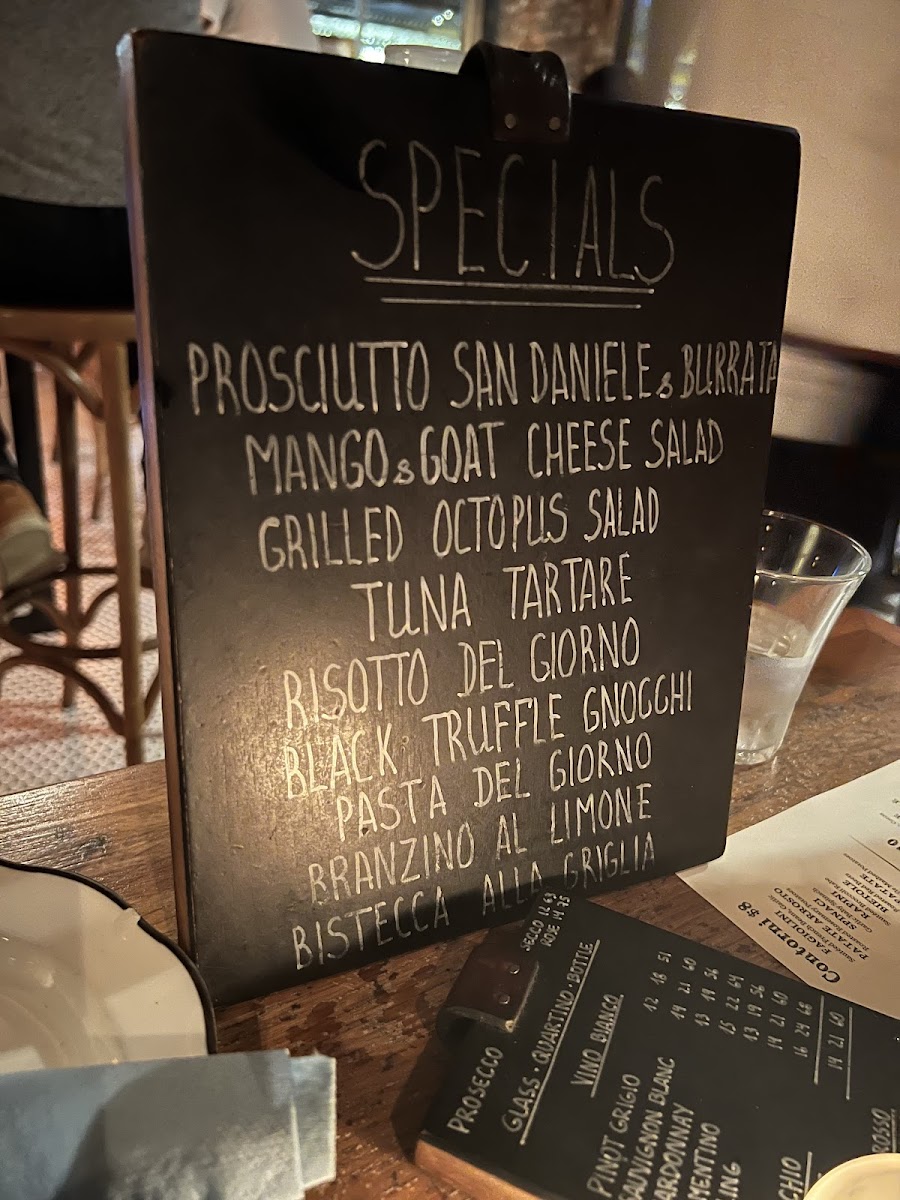 SPECIALS
PROSCIUTTO SAN DANIELE & BURRATA
MANGO & GOAT CHEESE SALAD
GRILLED OCTOPUS SALAD
TUNA TARTARE
RISOTTO DEL GIORNO
BLACK TRUFFLE GNOCCHI
PASTA DEL GIORNO
BRANZINO AL LIMONE
BISTECCA ALLA GRIGLIA
PROSECCO
SECCO 12 63
ROSE 14 73
GLASS · QUARTINO · BOTTLE
VINO BIANCO
PINOT GRIGIO 12 18 51
SAUVIGNON BLANC 14 21 60
ARDONNAY 13 19 56
MENTINO 15 22 64
ING 13 19 56
14 21 60
16 24 68
14 21 60
CHIO
ROSSO
Contorni $8
FAGIOLINI
PATATE ARROSTO
RAPINI
SPINACI
BIETOLE
PATATE